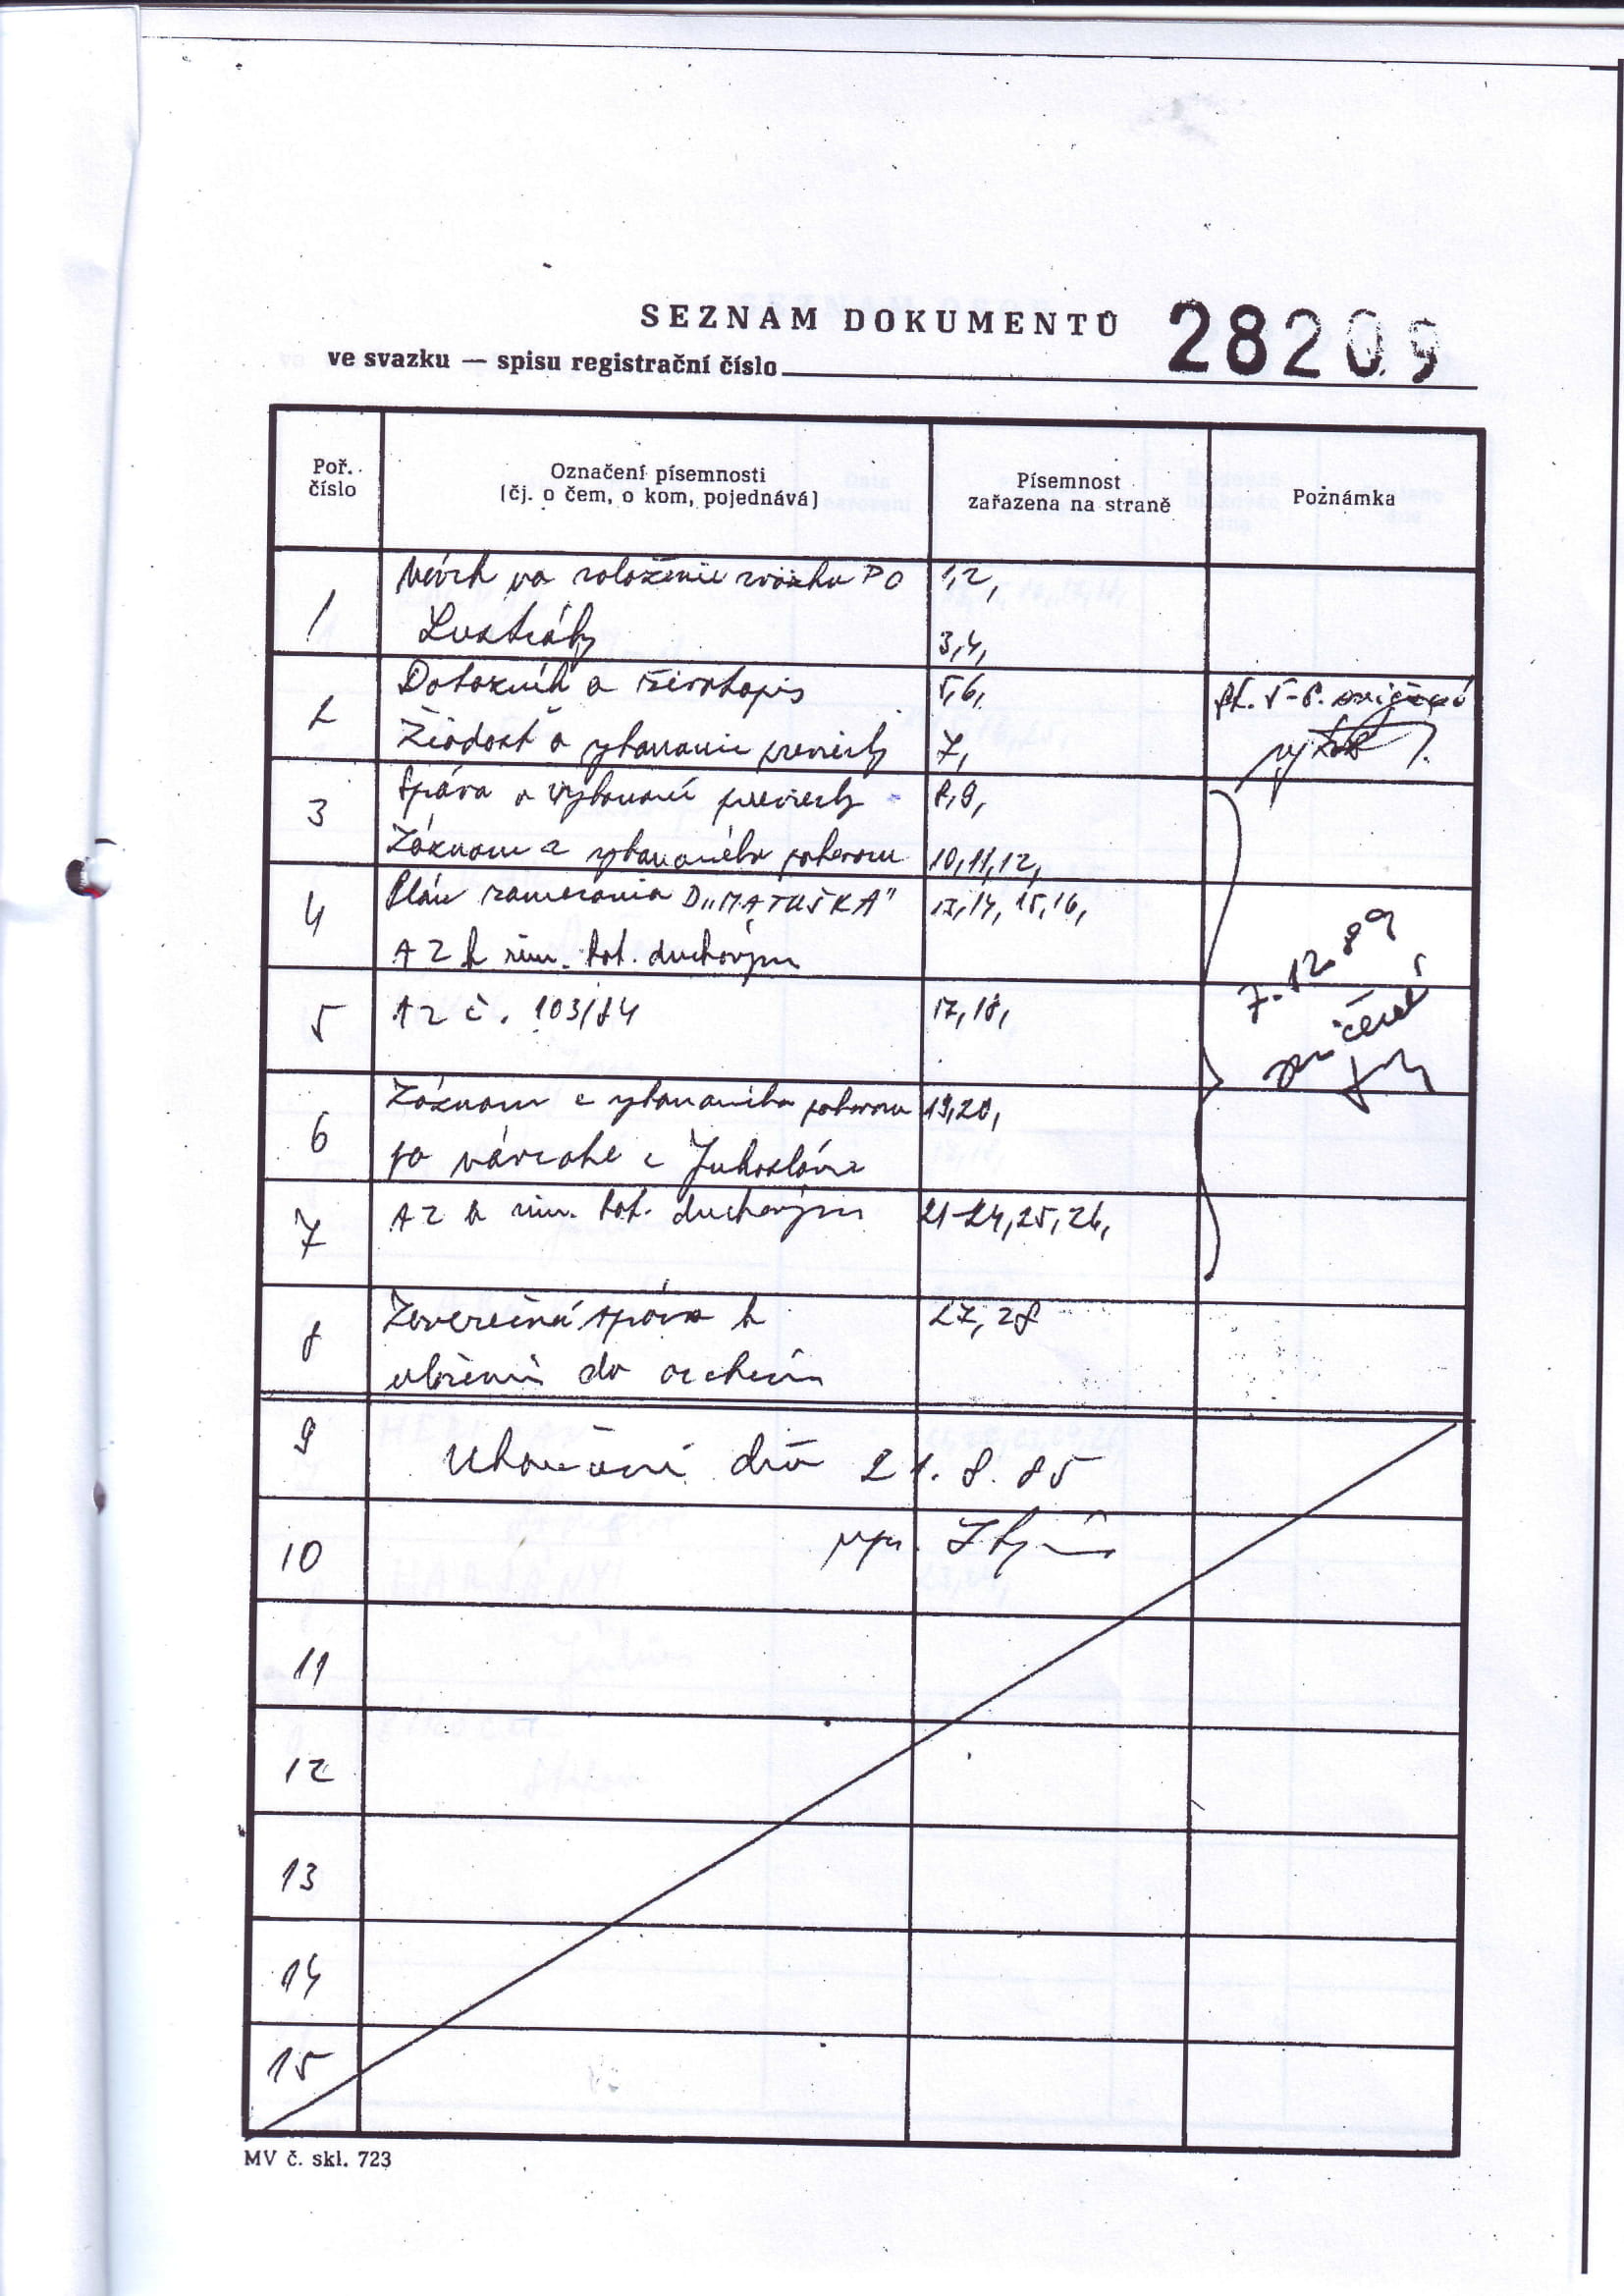 SEZNAM DOKUMENTŮ 28209
ve svazku — spisu registrační číslo
Poř. číslo
Označení písemnosti
(čj. o čem, o kom, pojednává)
Písemnost
zařazena na straně
Poznámka
1 Návrh na založenie zväzku PO 1,2,
Lustrácky 3,4,
2 Dotazník a životopis 5,6, st. 5-8.
Žiadosť o vykonanie previerky 7,
3 Správa o vykonaní previerky 8,9,
Záznam z vykonaného pohovoru 10,11,12,
4 Plán zamerania D„MATUŠKA" 13,14, 15,16,
AZ k rim. kat. duchovným
7.12.89
zničené
5 AZ č. 103/84 17,18,
6 Záznam z vykonaného pohovoru 19,20,
po návrate z Juhoslávie
7 AZ k rim. kat. duchovným 21-24,25,26,
8 Záverečná správa k 27,28
uložení do archívu
9 Ukončení dňa 21.8.85
10
11
12
13
14
15
MV č. skl. 723